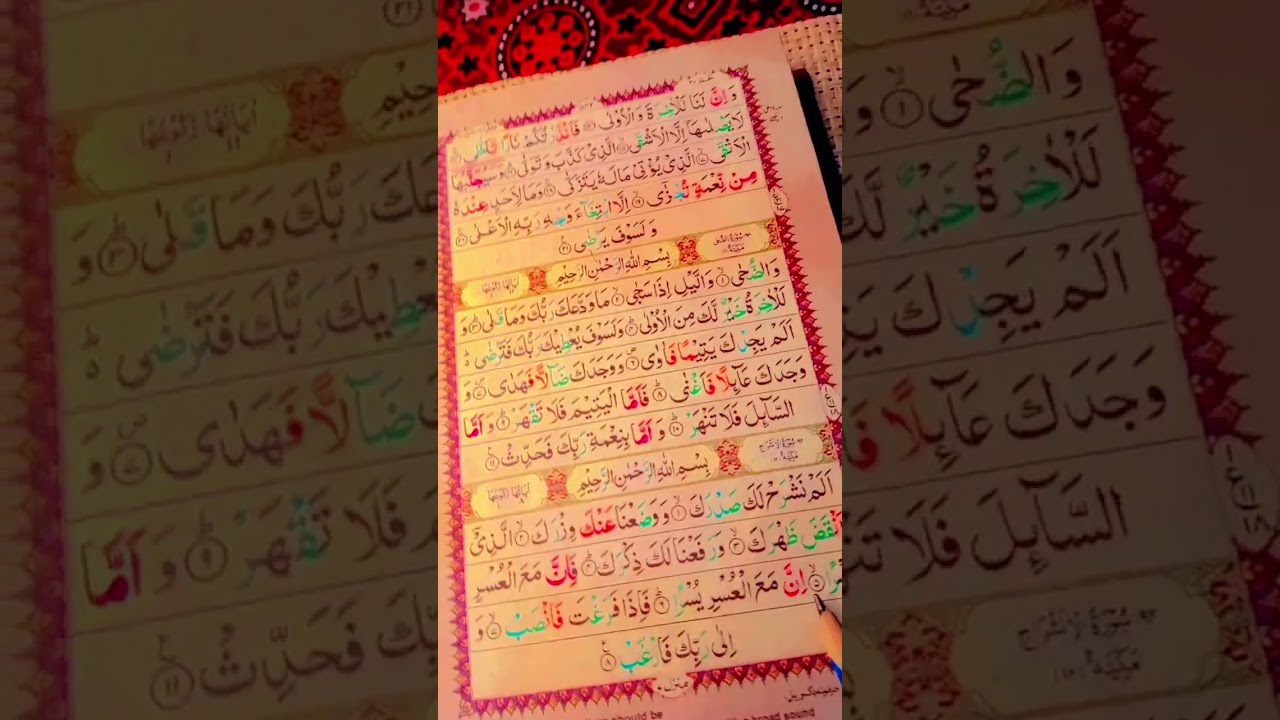 وَاِنَّ لَنَا لَلْاٰخِرَةَ وَالْاُوْلٰى ۝١٣ فَاَنْذَرْتُكُمْ نَارًا تَلَظّٰى ۝١٤
لَا يَصْلٰىهَا اِلَّا الْاَشْقَى ۝١٥ الَّذِىْ كَذَّبَ وَتَوَلّٰى ۝١٦ وَسَيُجَنَّبُهَا
الْاَتْقَى ۝١٧ الَّذِىْ يُؤْتِىْ مَالَهٗ يَتَزَكّٰى ۝١٨ وَمَا لِاَحَدٍ عِنْدَهٗ
مِنْ نِّعْمَةٍ تُجْزٰٓى ۝١٩ اِلَّا ابْتِغَآءَ وَجْهِ رَبِّهِ الْاَعْلٰى ۝٢٠
وَلَسَوْفَ يَرْضٰى ۝٢١
سُوْرَةُ الضُّحٰى مَكِّيَّةٌ بِسْمِ اللّٰهِ الرَّحْمٰنِ الرَّحِيْمِ
وَالضُّحٰى ۝١ وَالَّيْلِ اِذَا سَجٰى ۝٢ مَا وَدَّعَكَ رَبُّكَ وَمَا قَلٰى ۝٣ وَ
لَلْاٰخِرَةُ خَيْرٌ لَّكَ مِنَ الْاُوْلٰى ۝٤ وَلَسَوْفَ يُعْطِيْكَ رَبُّكَ فَتَرْضٰى ۝٥
اَلَمْ يَجِدْكَ يَتِيْمًا فَاٰوٰى ۝٦ وَوَجَدَكَ ضَآلًّا فَهَدٰى ۝٧ وَ
وَجَدَكَ عَآئِلًا فَاَغْنٰى ۝٨ فَاَمَّا الْيَتِيْمَ فَلَا تَقْهَرْ ۝٩ وَ اَمَّا
السَّآئِلَ فَلَا تَنْهَرْ ۝١٠ وَ اَمَّا بِنِعْمَةِ رَبِّكَ فَحَدِّثْ ۝١١
سُوْرَةُ الْاِنْشِرَاحِ مَكِّيَّةٌ بِسْمِ اللّٰهِ الرَّحْمٰنِ الرَّحِيْمِ
اَلَمْ نَشْرَحْ لَكَ صَدْرَكَ ۝١ وَوَضَعْنَا عَنْكَ وِزْرَكَ ۝٢ الَّذِىْٓ
اَنْقَضَ ظَهْرَكَ ۝٣ وَرَفَعْنَا لَكَ ذِكْرَكَ ۝٤ فَاِنَّ مَعَ الْعُسْرِ
يُسْرًا ۝٥ اِنَّ مَعَ الْعُسْرِ يُسْرًا ۝٦ فَاِذَا فَرَغْتَ فَانْصَبْ ۝٧ وَ
اِلٰى رَبِّكَ فَارْغَبْ ۝٨
should be
broad sound